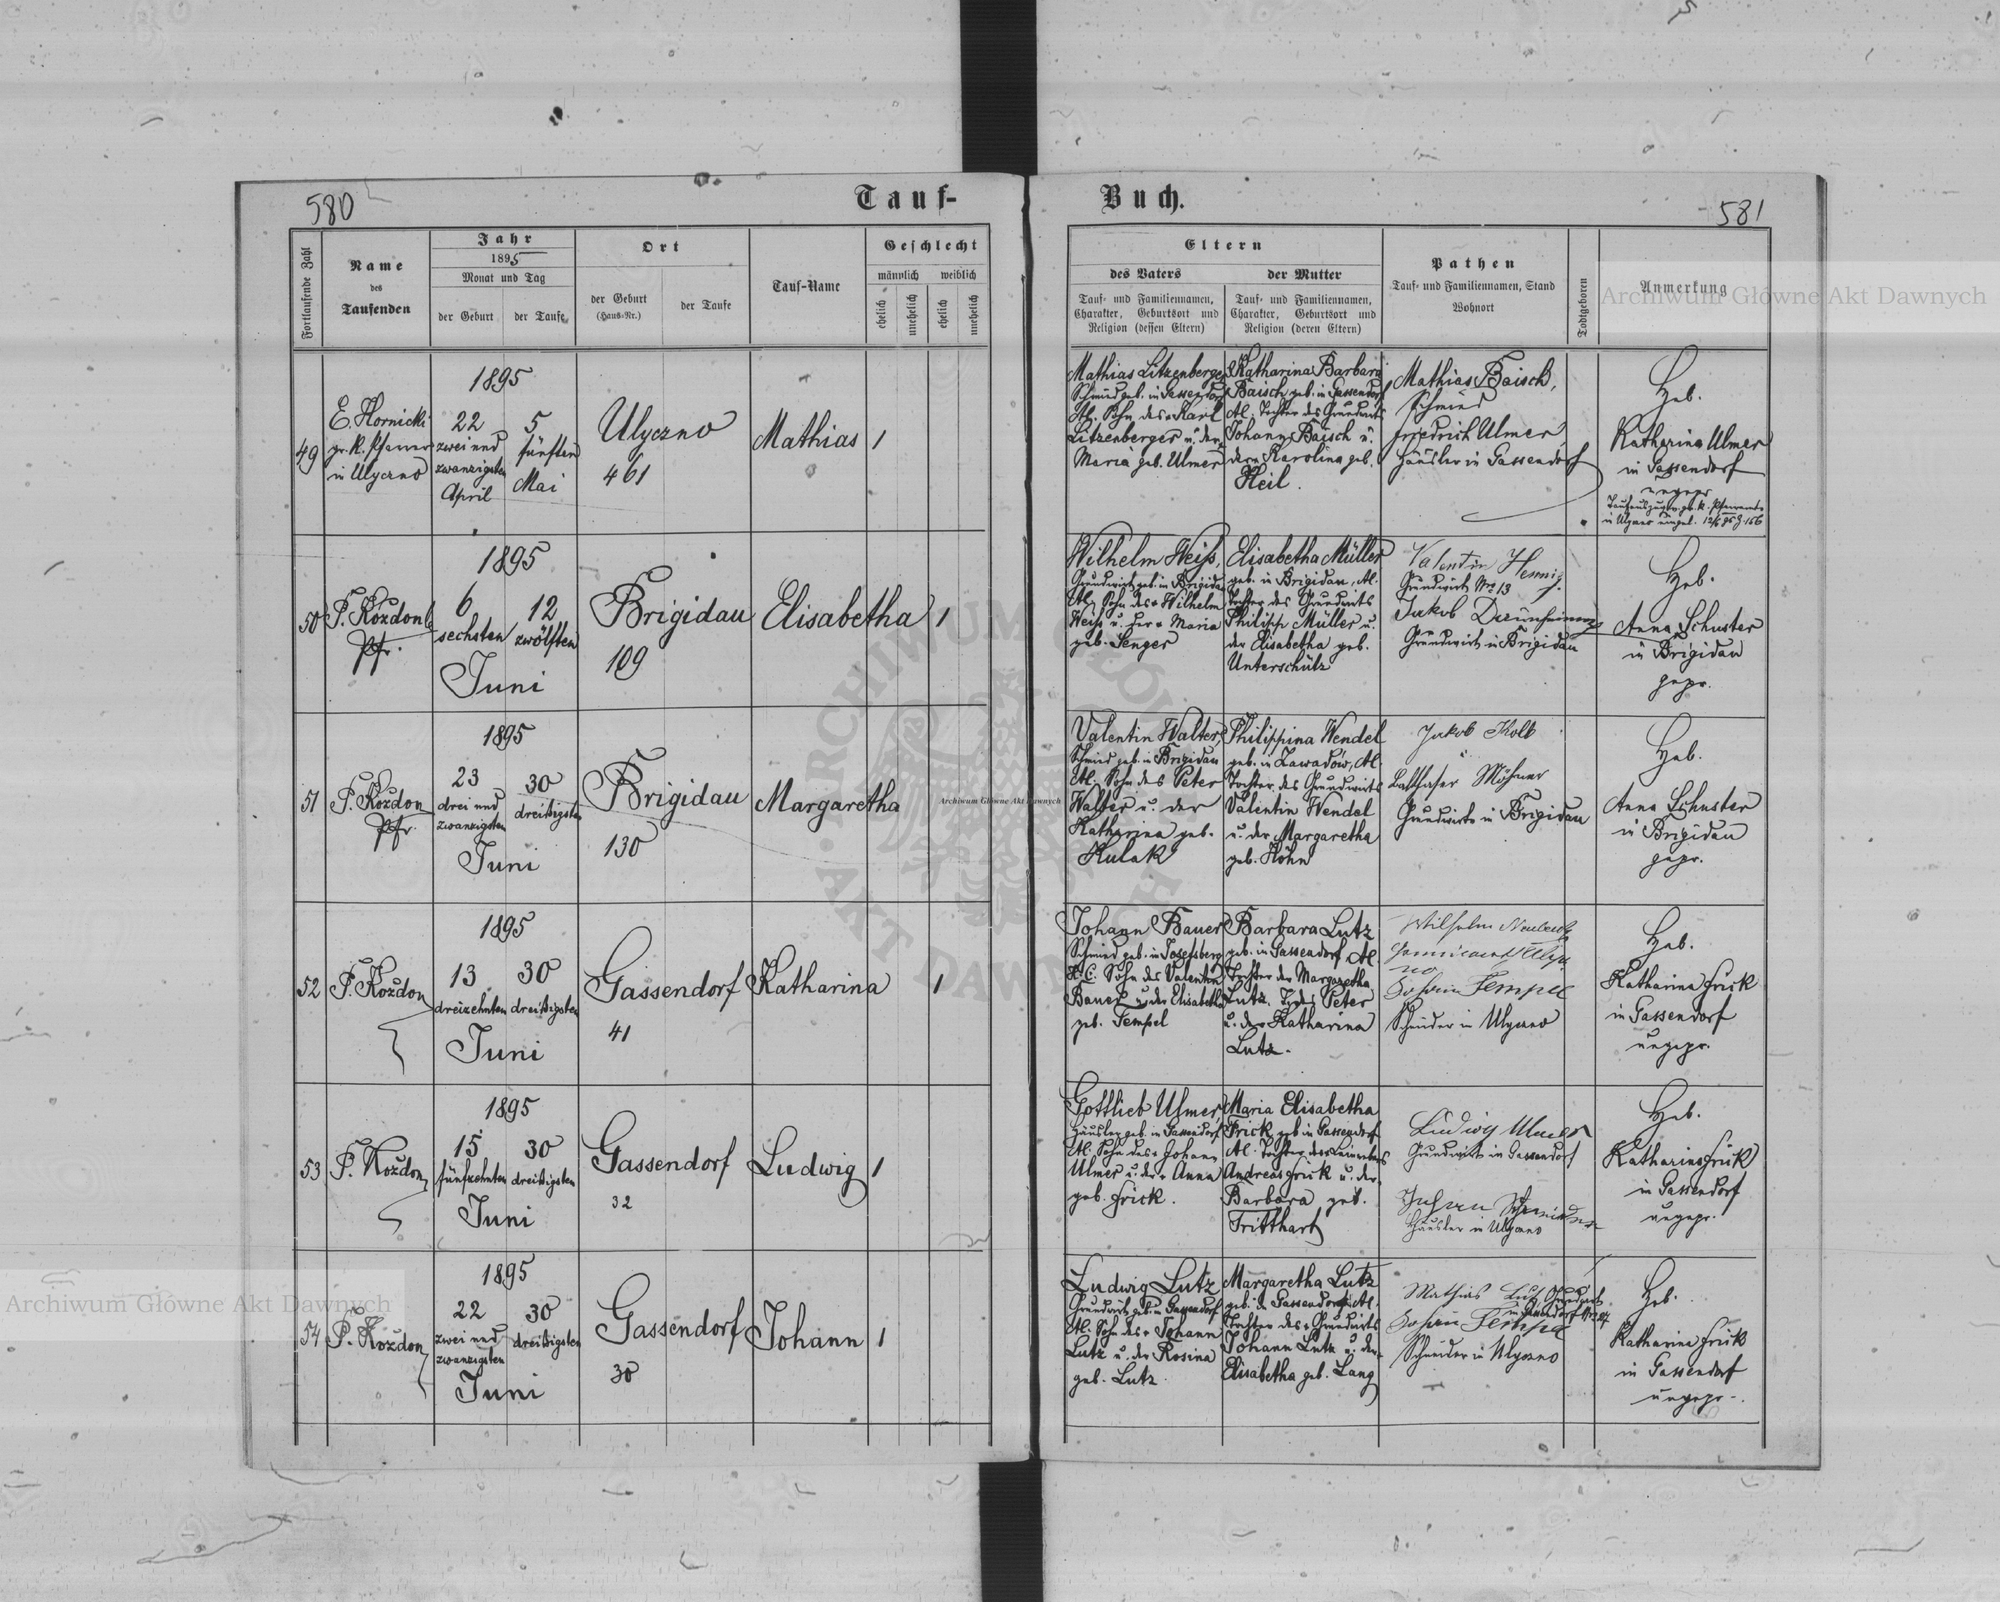 580
Tauf-
Buch.
581
Fortlaufende Zahl
Name
des
Taufenden
Jahr
1895
Monat und Tag
der Geburt
der Taufe
Ort
der Geburt
(Haus-Nr.)
der Taufe
Tauf-Name
Geschlecht
männlich
weiblich
ehelich
unehelich
ehelich
unehelich
Eltern
des Vaters
der Mutter
Tauf- und Familiennamen,
Charakter, Geburtsort und
Religion (dessen Eltern)
Tauf- und Familiennamen,
Charakter, Geburtsort und
Religion (deren Eltern)
Pathen
Tauf- und Familiennamen, Stand
Wohnort
Todtgeboren
Anmerkung
49
E. Hornicki
gr. k. Pfarrer
in Ulyczno
1895
22
zwei und
zwanzigsten
April
5
fünften
Mai
Ulyczno
461
Mathias
1
Mathias Litzenberger
Schmied geb. in Gassendorf
Al. Sohn des Karl
Litzenberger u. der
Maria geb. Ulmer
Katharina Barbara
Baisch, geb. in Gassendorf
Al. Tochter des Grundwirts
Johann Baisch u.
der Karolina geb.
Heil.
Mathias Baisch,
Schmied
Friedrich Ulmer
Häusler in Gassendorf
Heb.
Katharina Ulmer
in Gassendorf
ungepr.
50
P. Kozdon
Pfr.
1895
6
sechsten
12
zwölften
Juni
Brigidau
109
Elisabetha
1
Wilhelm Weiß,
Grundwirt geb. in Brigidau
Al. Sohn des Wilhelm
Weiß u. der Maria
geb. Senger
Elisabetha Müller
geb. in Brigidau, Al.
Tochter des Grundwirts
Philipp Müller u.
der Elisabetha geb.
Unterschütz
Valentin Hennig
Grundwirt No 13
Jakob
Grundwirt in Brigidau
Heb.
Anna Schuster
in Brigidau
gepr.
51
P. Kozdon
Pfr.
1895
23
drei und
zwanzigsten
30
dreißigsten
Juni
Brigidau
130
Margaretha
Valentin Walter,
Schmied geb. in Brigidau
Al. Sohn des Peter
Walter u. der
Katharina geb.
Kulak
Philippina Wendel
geb. in Zawadow, Al.
Tochter des Grundwirts
Valentin Wendel
u. der Margaretha
geb. Höhn
Jakob Kolb
u.
Balthaser Möhner
Grundwirte in Brigidau
Heb.
Anna Schuster
in Brigidau
gepr.
52
P. Kozdon
1895
13
dreizehnten
30
dreißigsten
Juni
Gassendorf
41
Katharina
1
Johann Bauer
Schmied geb. in Josefsberg
H. C. Sohn des Valentin
Bauer u. der Elisabetha
geb. Tempel
Barbara Lutz
geb. in Gassendorf Al.
Tochter der Margaretha
Lutz, T. des Peter
u. der Katharina
Lutz.
Wilhelm
Johann Tempel
Schneider in Ulyczno
Heb.
Katharina Frick
in Gassendorf
ungepr.
53
P. Kozdon
1895
15
fünfzehnten
30
dreißigsten
Juni
Gassendorf
32
Ludwig
1
Gottlieb Ulmer
Häusler geb. in Gassendorf
Al. Sohn des Johann
Ulmer u. der Anna
geb. Frick.
Maria Elisabetha
Frick geb. in Gassendorf
Al. Tochter des
Andreas Frick u. der
Barbara geb.
Tritthart
Ludwig Ulmer
Grundwirt in Gassendorf
Johann
Häusler in Ulyczno
Heb.
Katharina Frick
in Gassendorf
ungepr.
54
P. Kozdon
1895
22
zwei und
zwanzigsten
30
dreißigsten
Juni
Gassendorf
30
Johann
1
Ludwig Lutz
Grundwirt geb. in Gassendorf
Al. Sohn des Johann
Lutz u. der Rosina
geb. Lutz
Margaretha Lutz
geb. in Gassendorf, Al.
Tochter des Grundwirts
Johann Lutz u. der
Elisabetha geb. Lang
Mathias Lutz Grundwirt
in Gassendorf
Johann Tempel
Schneider in Ulyczno
Heb.
Katharina Frick
in Gassendorf
ungepr.
Archiwum Główne Akt Dawnych
Archiwum Główne Akt Dawnych
Archiwum Główne Akt Dawnych
ARCHIWUM GŁÓWNE
AKT DAWNYCH